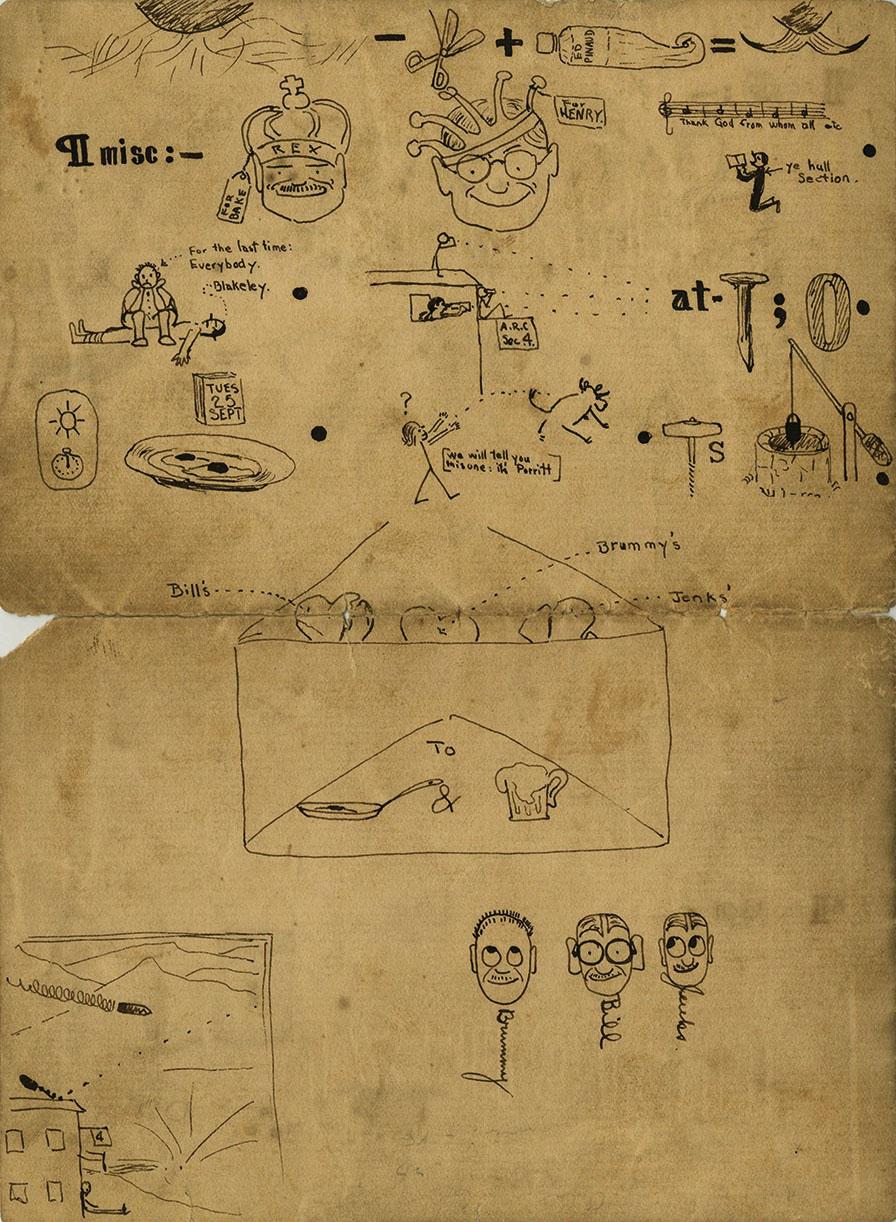 - + ED PINAUD =
¶ misc:-
REX
FOR BAKE
For HENRY.
Thank God from whom all etc
ye hull
Section.
For the last time:
Everybody.
Blakeley.
A.R.C
Sec 4.
at-T; O.
TUES
25
SEPT
?
we will tell you
misune: iti Porritt
S
Bill's
Brummy's
Jenks'
To
&
4
Brummy
Bill
Jenks.